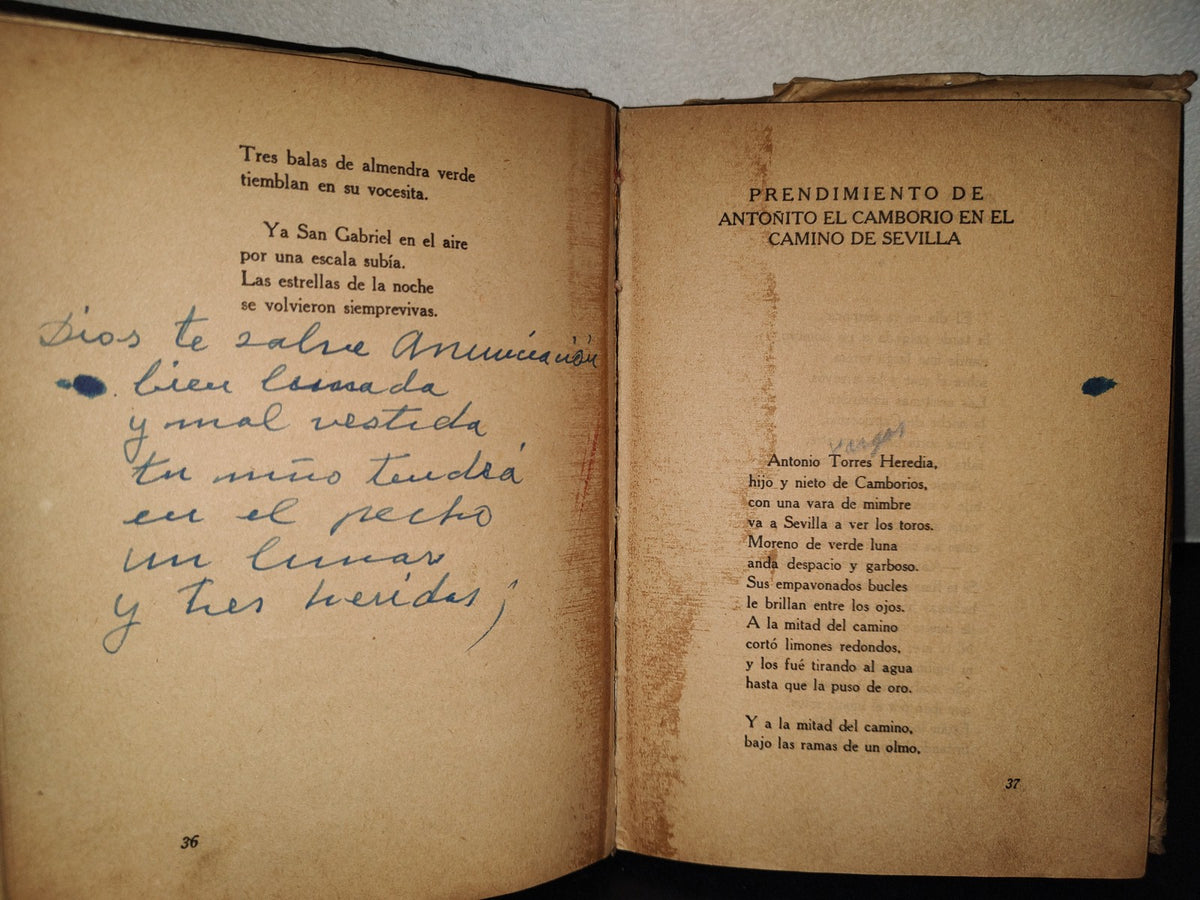 Tres balas de almendra verde
tiemblan en su vocesita.
Ya San Gabriel en el aire
por una escala subía.
Las estrellas de la noche
se volvieron siemprevivas.
Dios te salve Anunciación
bien lunada
y mal vestida
tu niño tendrá
en el pecho
un lunar
y tres heridas
36
PRENDIMIENTO DE
ANTOÑITO EL CAMBORIO EN EL
CAMINO DE SEVILLA
Vargas
Antonio Torres Heredia,
hijo y nieto de Camborios,
con una vara de mimbre
va a Sevilla a ver los toros.
Moreno de verde luna
anda despacio y garboso.
Sus empavonados bucles
le brillan entre los ojos.
A la mitad del camino
cortó limones redondos,
y los fué tirando al agua
hasta que la puso de oro.
Y a la mitad del camino,
bajo las ramas de un olmo,
37